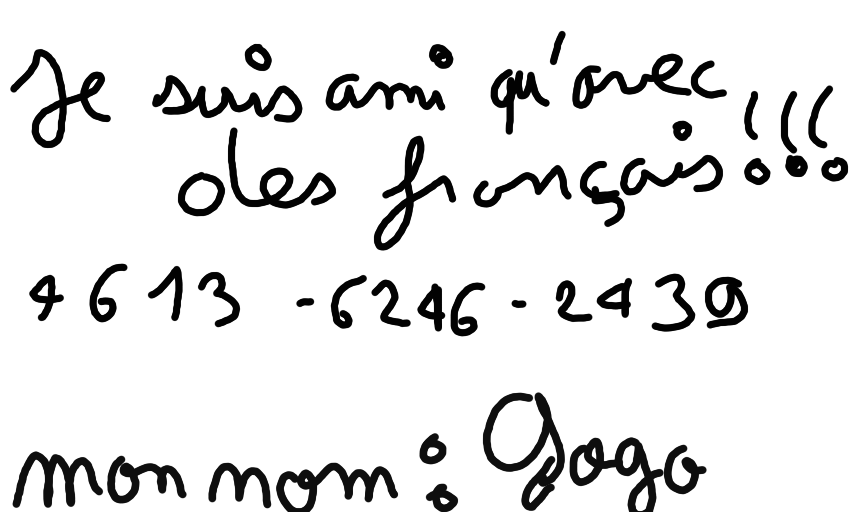 Je suis ami qu'avec
des français!!!
4613-6246-2439
mon nom: Gogo